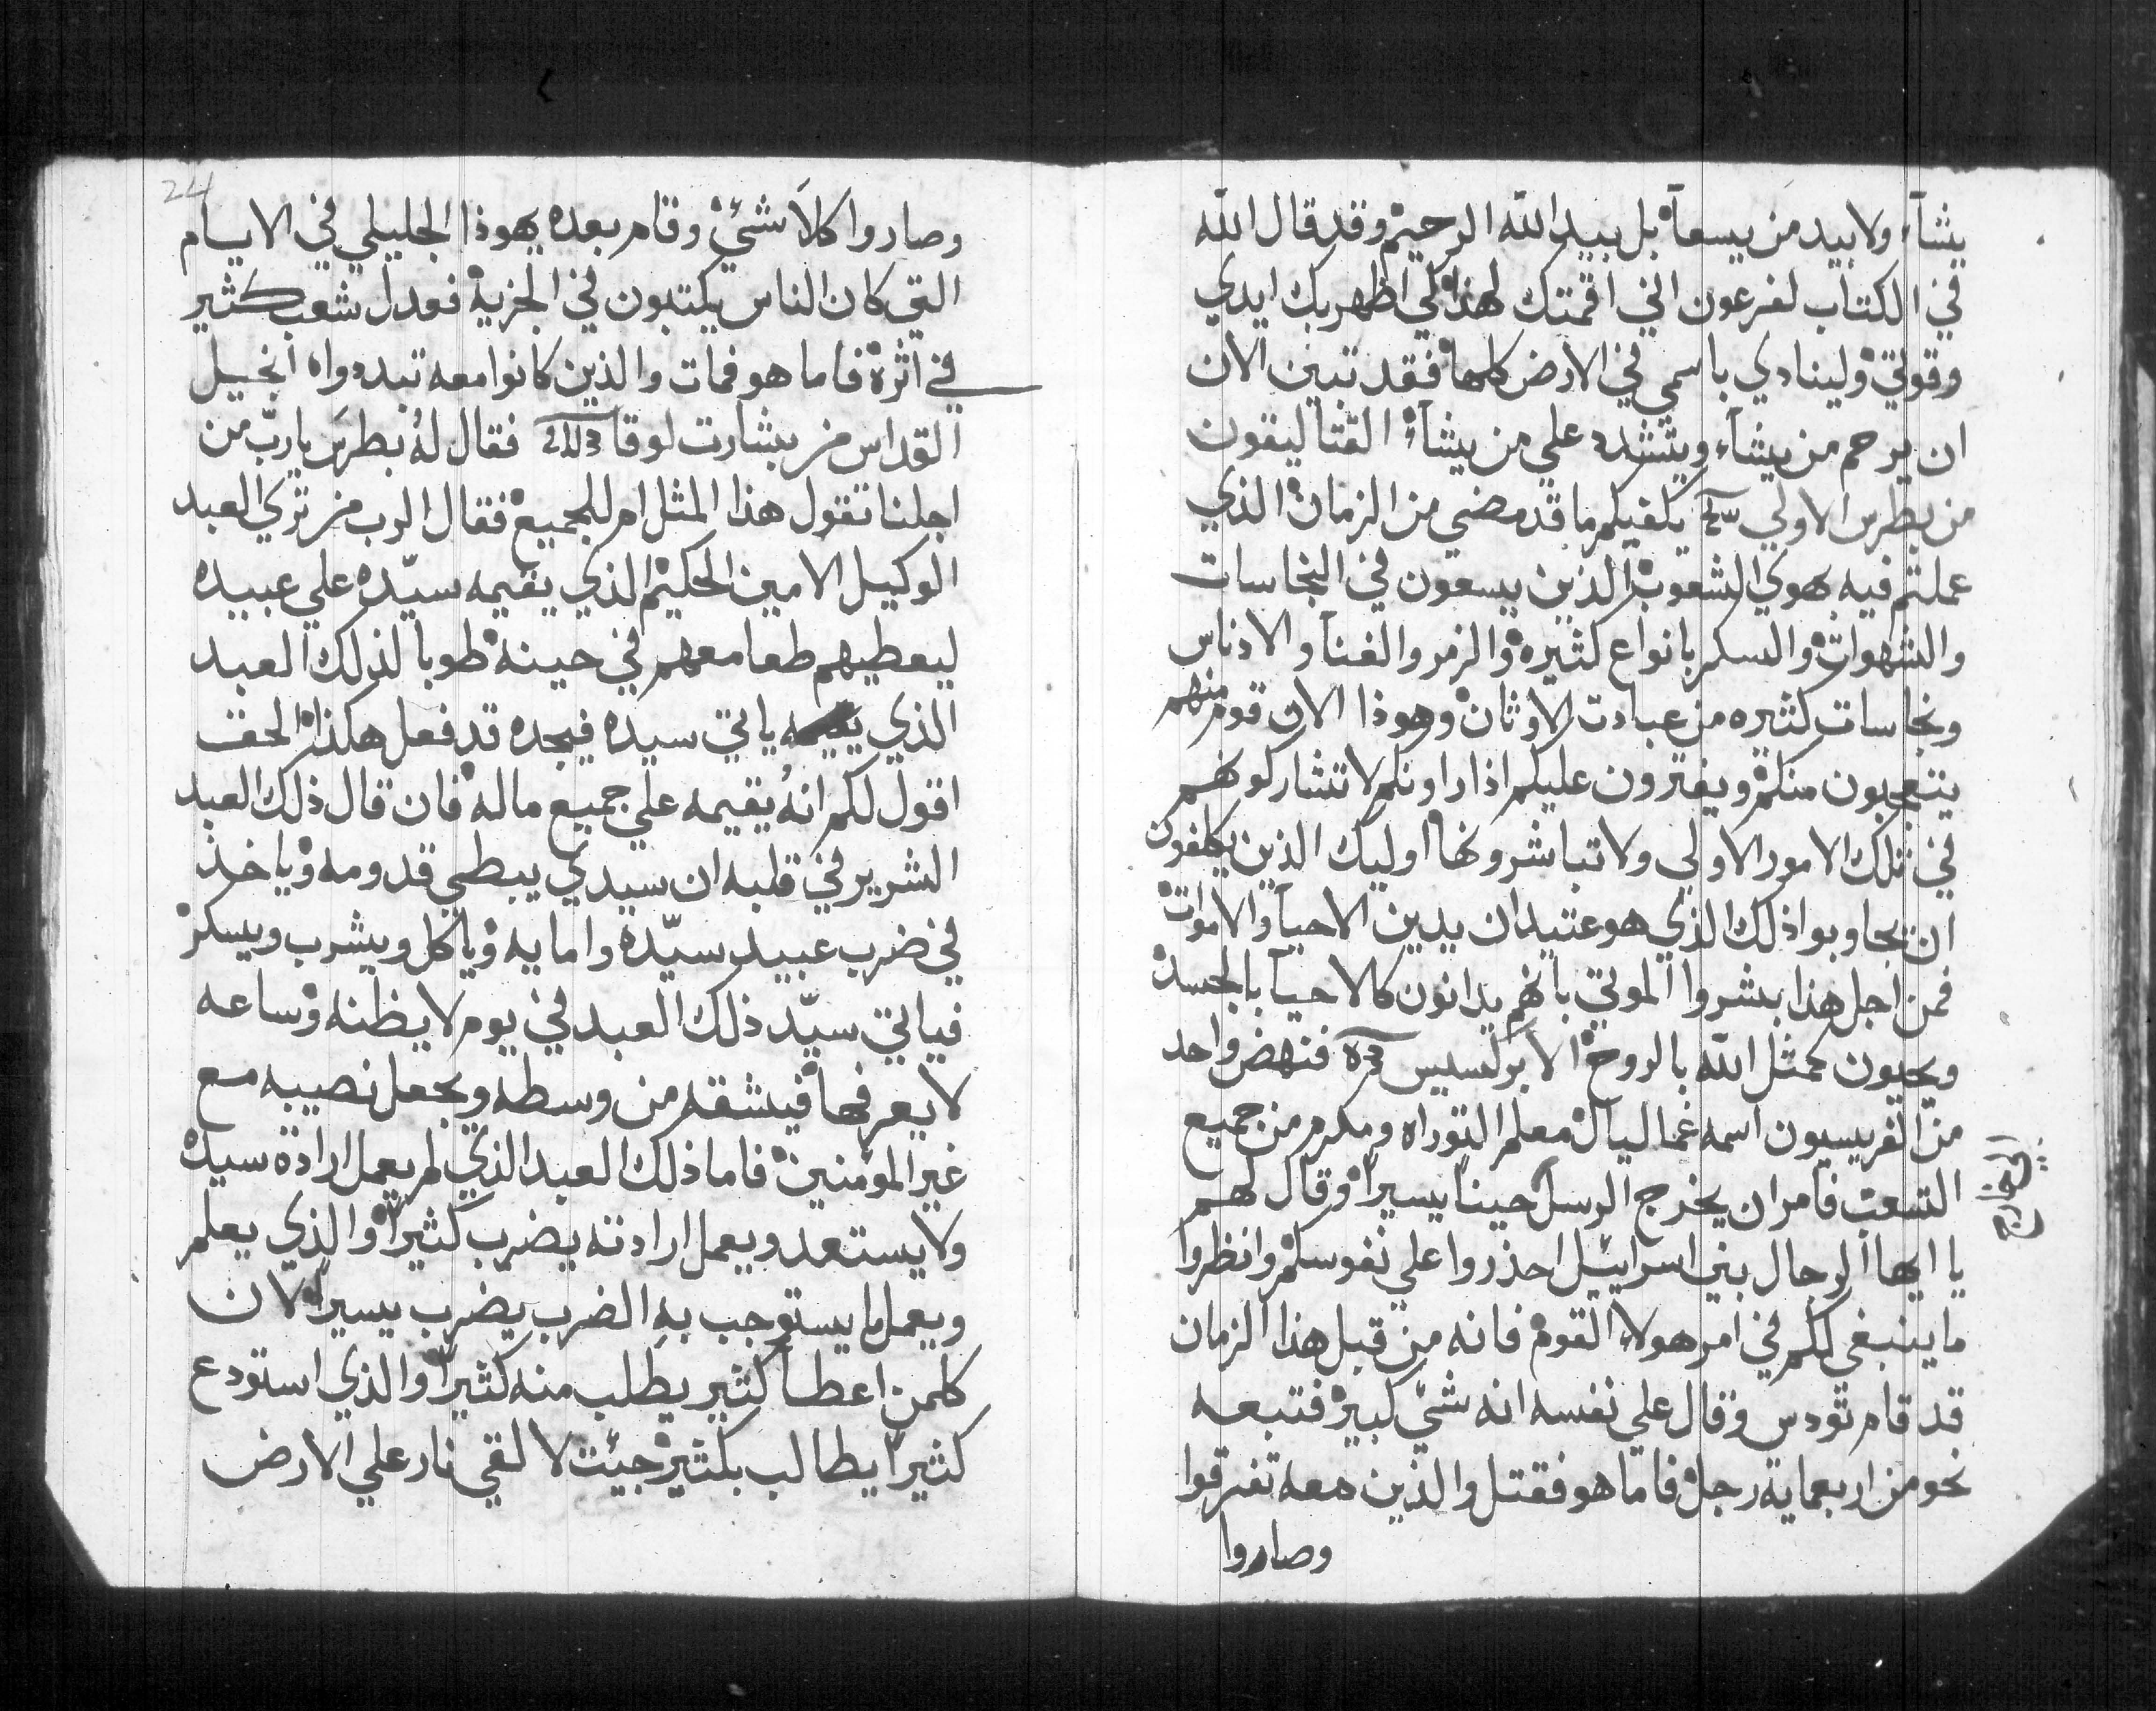 يشآء ولا بيد من يسعآ بل بيد الله الرحيم وقد قال الله
في الكتاب لفرعون اني اقمتك لهذا لكي اظهر بك ايدي
وقوتي ولينادي باسمي في الارض كلها فقد تبين الان
ان يرحم من يشآء ويتشدد علي من يشآء القتاليقون
من بطرس الاولي يكفيكم ما قد مضي من الزمان الذي
عملتم فيه بهوي الشعوب الذين يسعون في النجاسات
والشهوات والسكر بانواع كثيره والزمر والغنآ والادناس
ونجاسات كثيره من عبادت الاوثان وهوذا الان قوم منهم
يتعجبون منكم ويفترون عليكم اذا راونكم لا تشاركونهم
في تلك الامور الاولي ولا تباشرونها اوليك الذين يكلفون
ان يجاوبوا ذلك الذي هو عتيد ان يدين الاحيآ والاموات
فمن اجل هذا بشروا الموتي بانهم يدانون كالاحيآ بالجسد
ويحيون كمثل الله بالروح الابركسيس فنهض واحد
من الفريسيون اسمه غماليال معلم التوراه ومكرم من جميع
الشعب فامر ان يخرج الرسل حيناً يسيراً وقال لهم
يا ايها الرجال بني اسراييل احذروا علي نفوسكم وانظروا
ما ينبغي لكم في امر هولاء القوم فانه من قبل هذا الزمان
قد قام تودس وقال علي نفسه انه شي كبير فتبعه
نحو من اربعمايه رجل فاما هو فقتل والذين معه تفرقوا
وصاروا
24
وصاروا كلا شي وقام بعده يهوذا الجليلي في الايام
التي كان الناس يكتبون في الجزية فعدل شعب كثير
في اثرة فاما هو فمات والذين كانوا معه تبددوا انجيل
القداس من بشارت لوقا فقال لهُ بطرس يا ربّ من
اجلنا تقول هذا المثل ام للجميع فقال الرب من تري العبد
الوكيل الامين الحكيم الذي يقيمه سيّده علي عبيده
ليعطيهم طعامهم في حينه طوبا لذلك العبد
الذي ياتي سيده فيجده قد فعل هكذا الحق
اقول لكم انهُ يقيمه علي جميع ماله فان قال ذلك العبد
الشرير في قلبه ان سيدي يبطي قدومه وياخذ
في ضرب عبيد سيّده وامايه وياكل ويشرب ويسكر
فياتي سيّد ذلك العبد في يوم لا يظنه وساعه
لا يعرفها فيشقه من وسطه ويجعل نصيبه مع
غير المومنين فاما ذلك العبد الذي لم يعمل ارادة سيده
ولا يستعد ويعمل ارادته يضرب كثيراً والذي يعلم
ويعمل ما يستوجب به الضرب يضرب يسيراً لان
كلمن اعطا كثير يطلب منه كثيراً والذي استودع
كثيراً يطالب بكثير جيت لالقي نار علي الارض